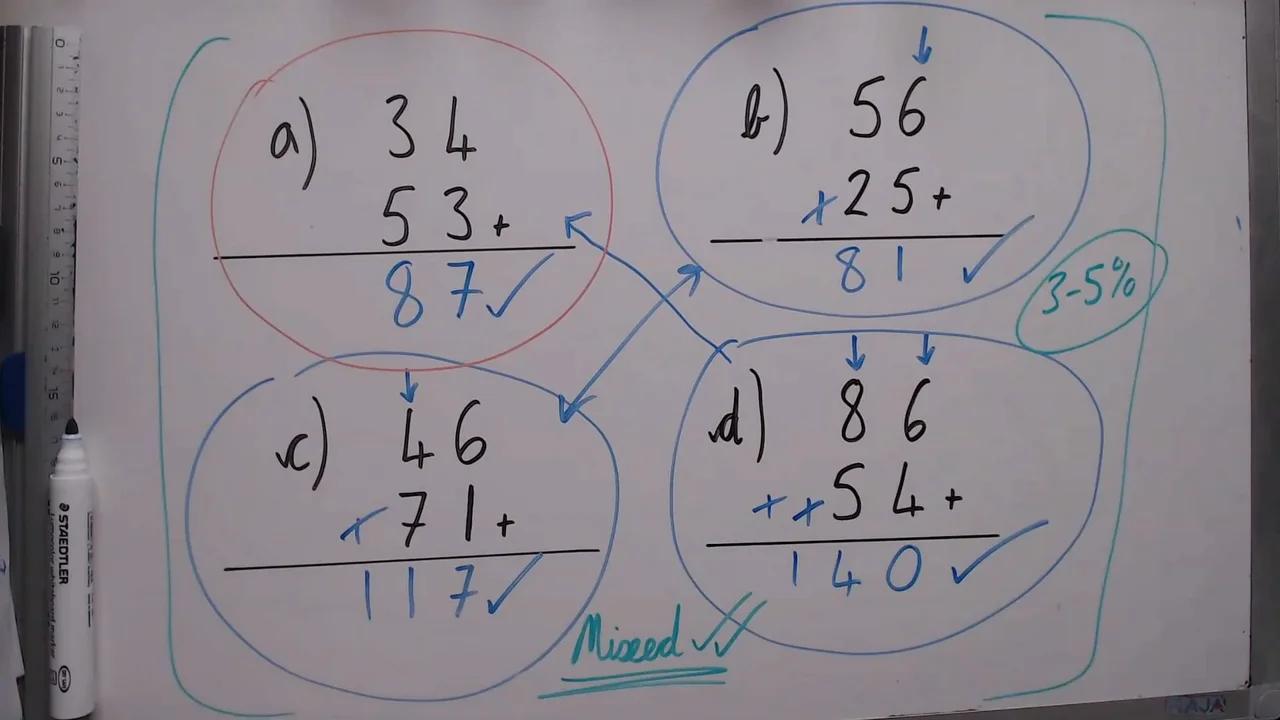 a) 34
53+
87✓
b) 56
×25+
81 ✓
3-5%
c) 46
×71+
117✓
d) 86
××54+
140✓
Mixed ✓✓
STAEDTLER